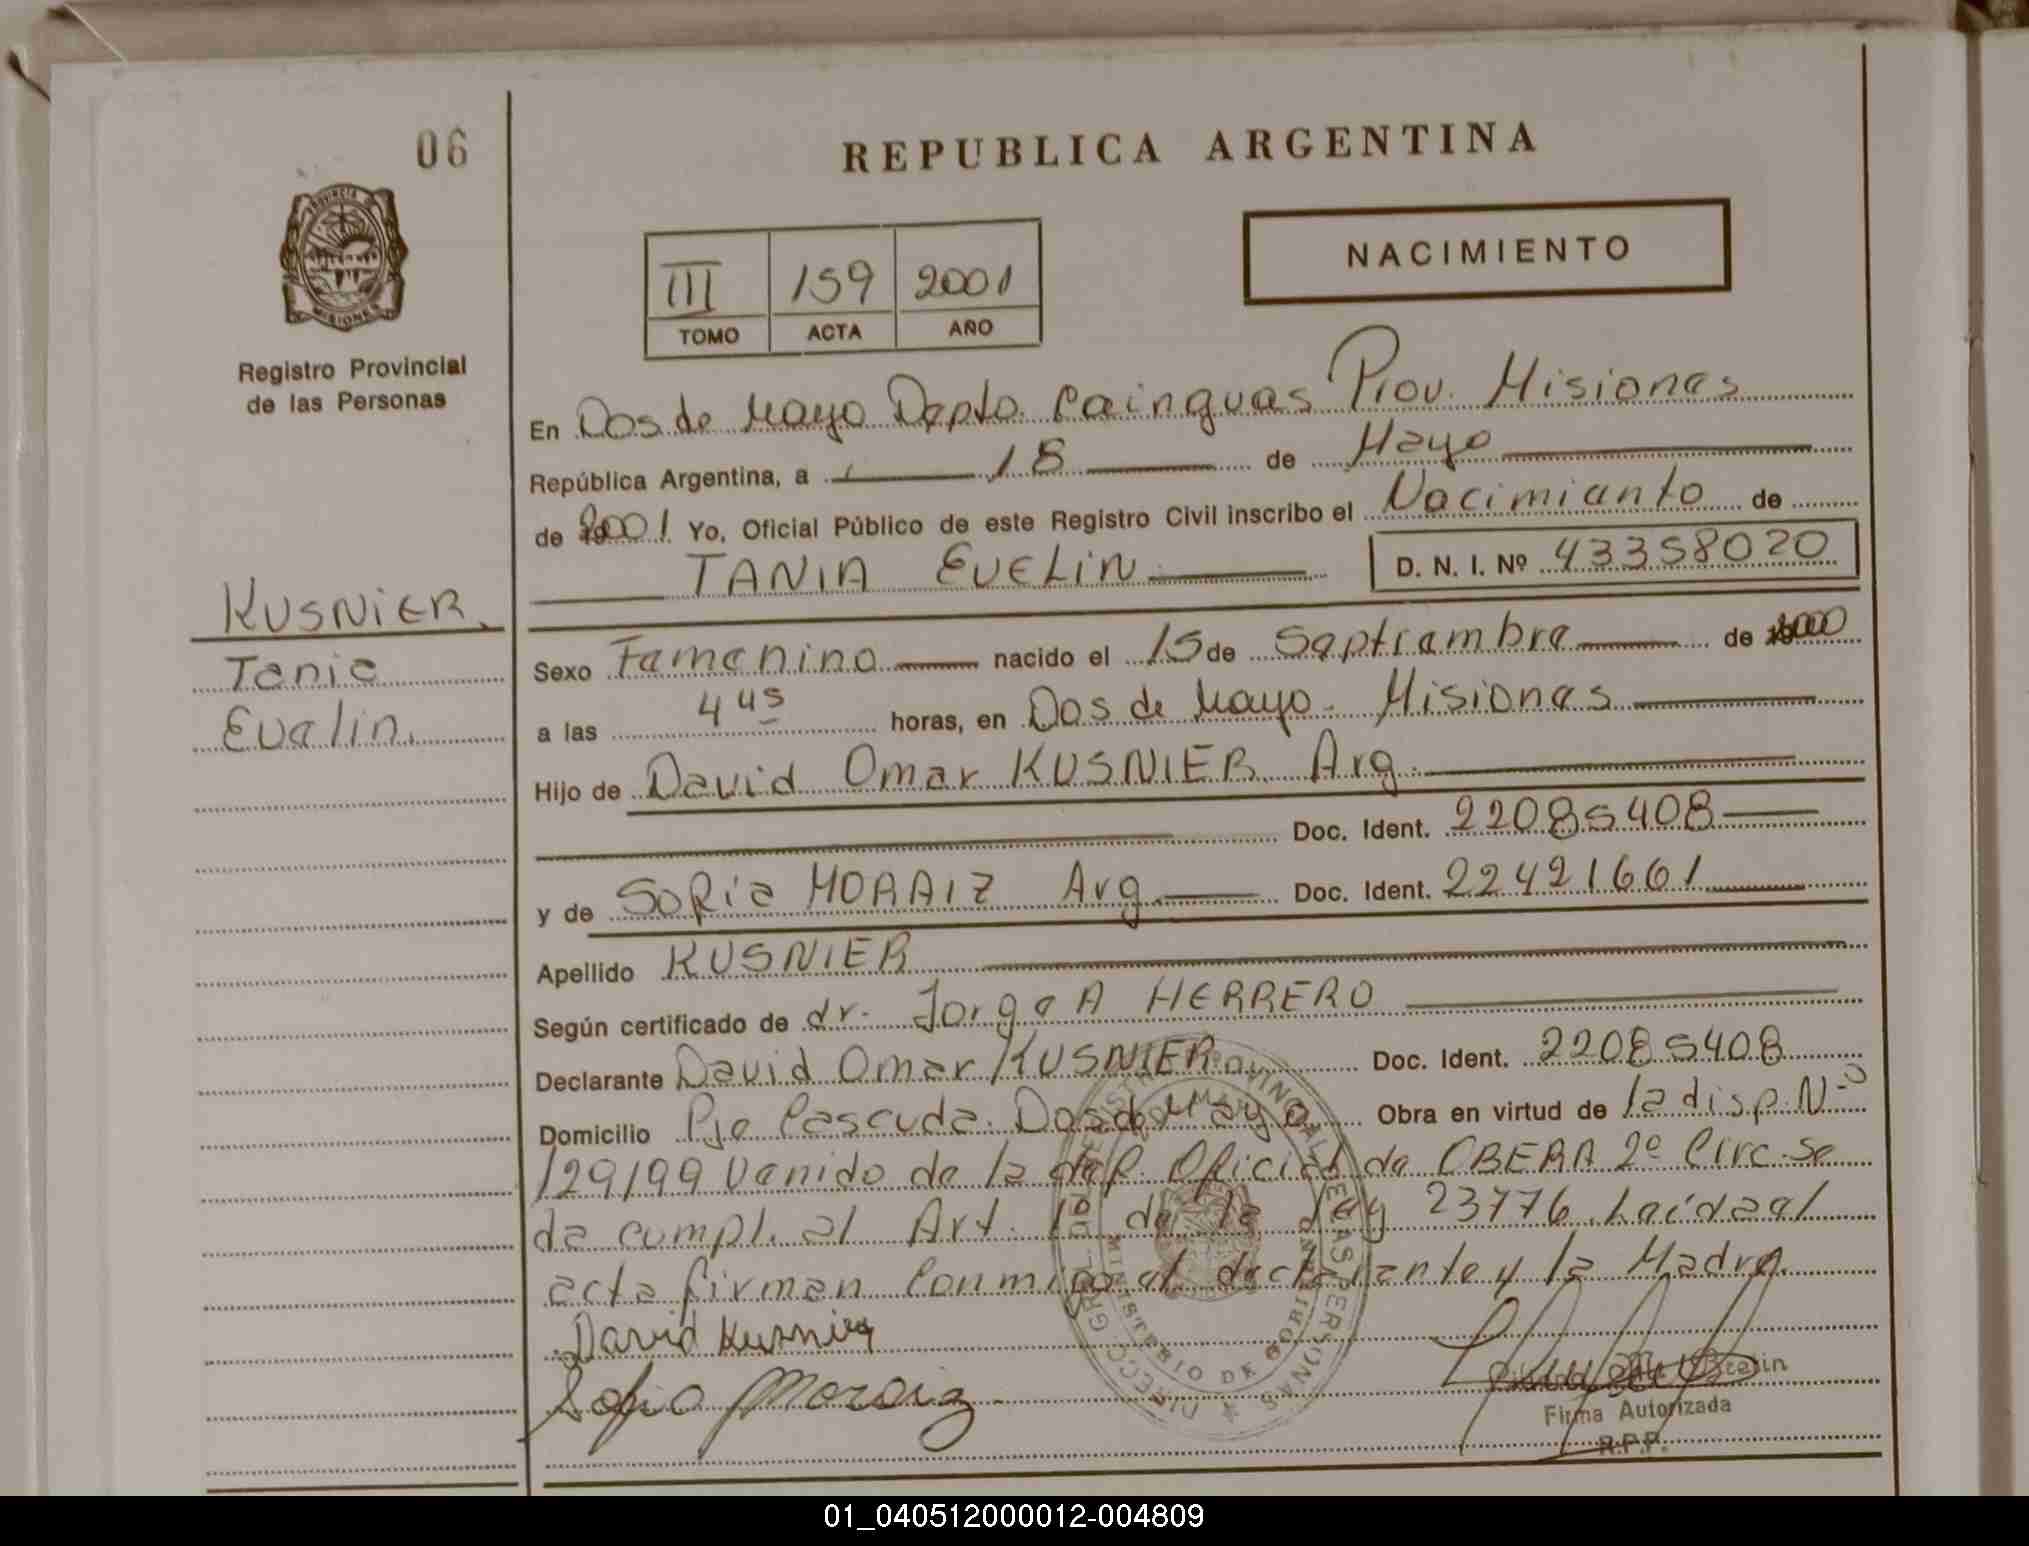 06
REPUBLICA ARGENTINA
NACIMIENTO
III 159 2001
TOMO ACTA AÑO
PROVINCIA DE MISIONES
Registro Provincial
de las Personas
En Dos de Mayo Depto. Cainguas Prov. Misiones
República Argentina, a 18 de Mayo
de 2001 Yo, Oficial Público de este Registro Civil inscribo el Nacimiento de
TANIA EVELIN D. N. I. Nº 43358020
KUSNIER.
Tania
Evelin.
Sexo Femenino nacido el 15 de Septiembre de 2000
a las 4 45 horas, en Dos de Mayo - Misiones
Hijo de David Omar KUSNIER Arg.
Doc. Ident. 22085408
y de Sofia MORAIZ Arg. Doc. Ident. 22421661
Apellido KUSNIER
Según certificado de dr. Jorge A HERRERO
Declarante David Omar KUSNIER Doc. Ident. 22085408
Domicilio Pje Cascuda. Dos de Mayo Obra en virtud de la disp. Nº
129/99 Venido de la del. Oficial de OBERA 2º Circ. Se
da cumpl. al Art. 1º de la ley 23776. Leída el
acta firman Conmigo el declarante y la Madre.
David Kusnier
Sofia Moraiz
Firma Autorizada
R.P.P.
MINISTERIO DE GOBIERNO
01_040512000012-004809